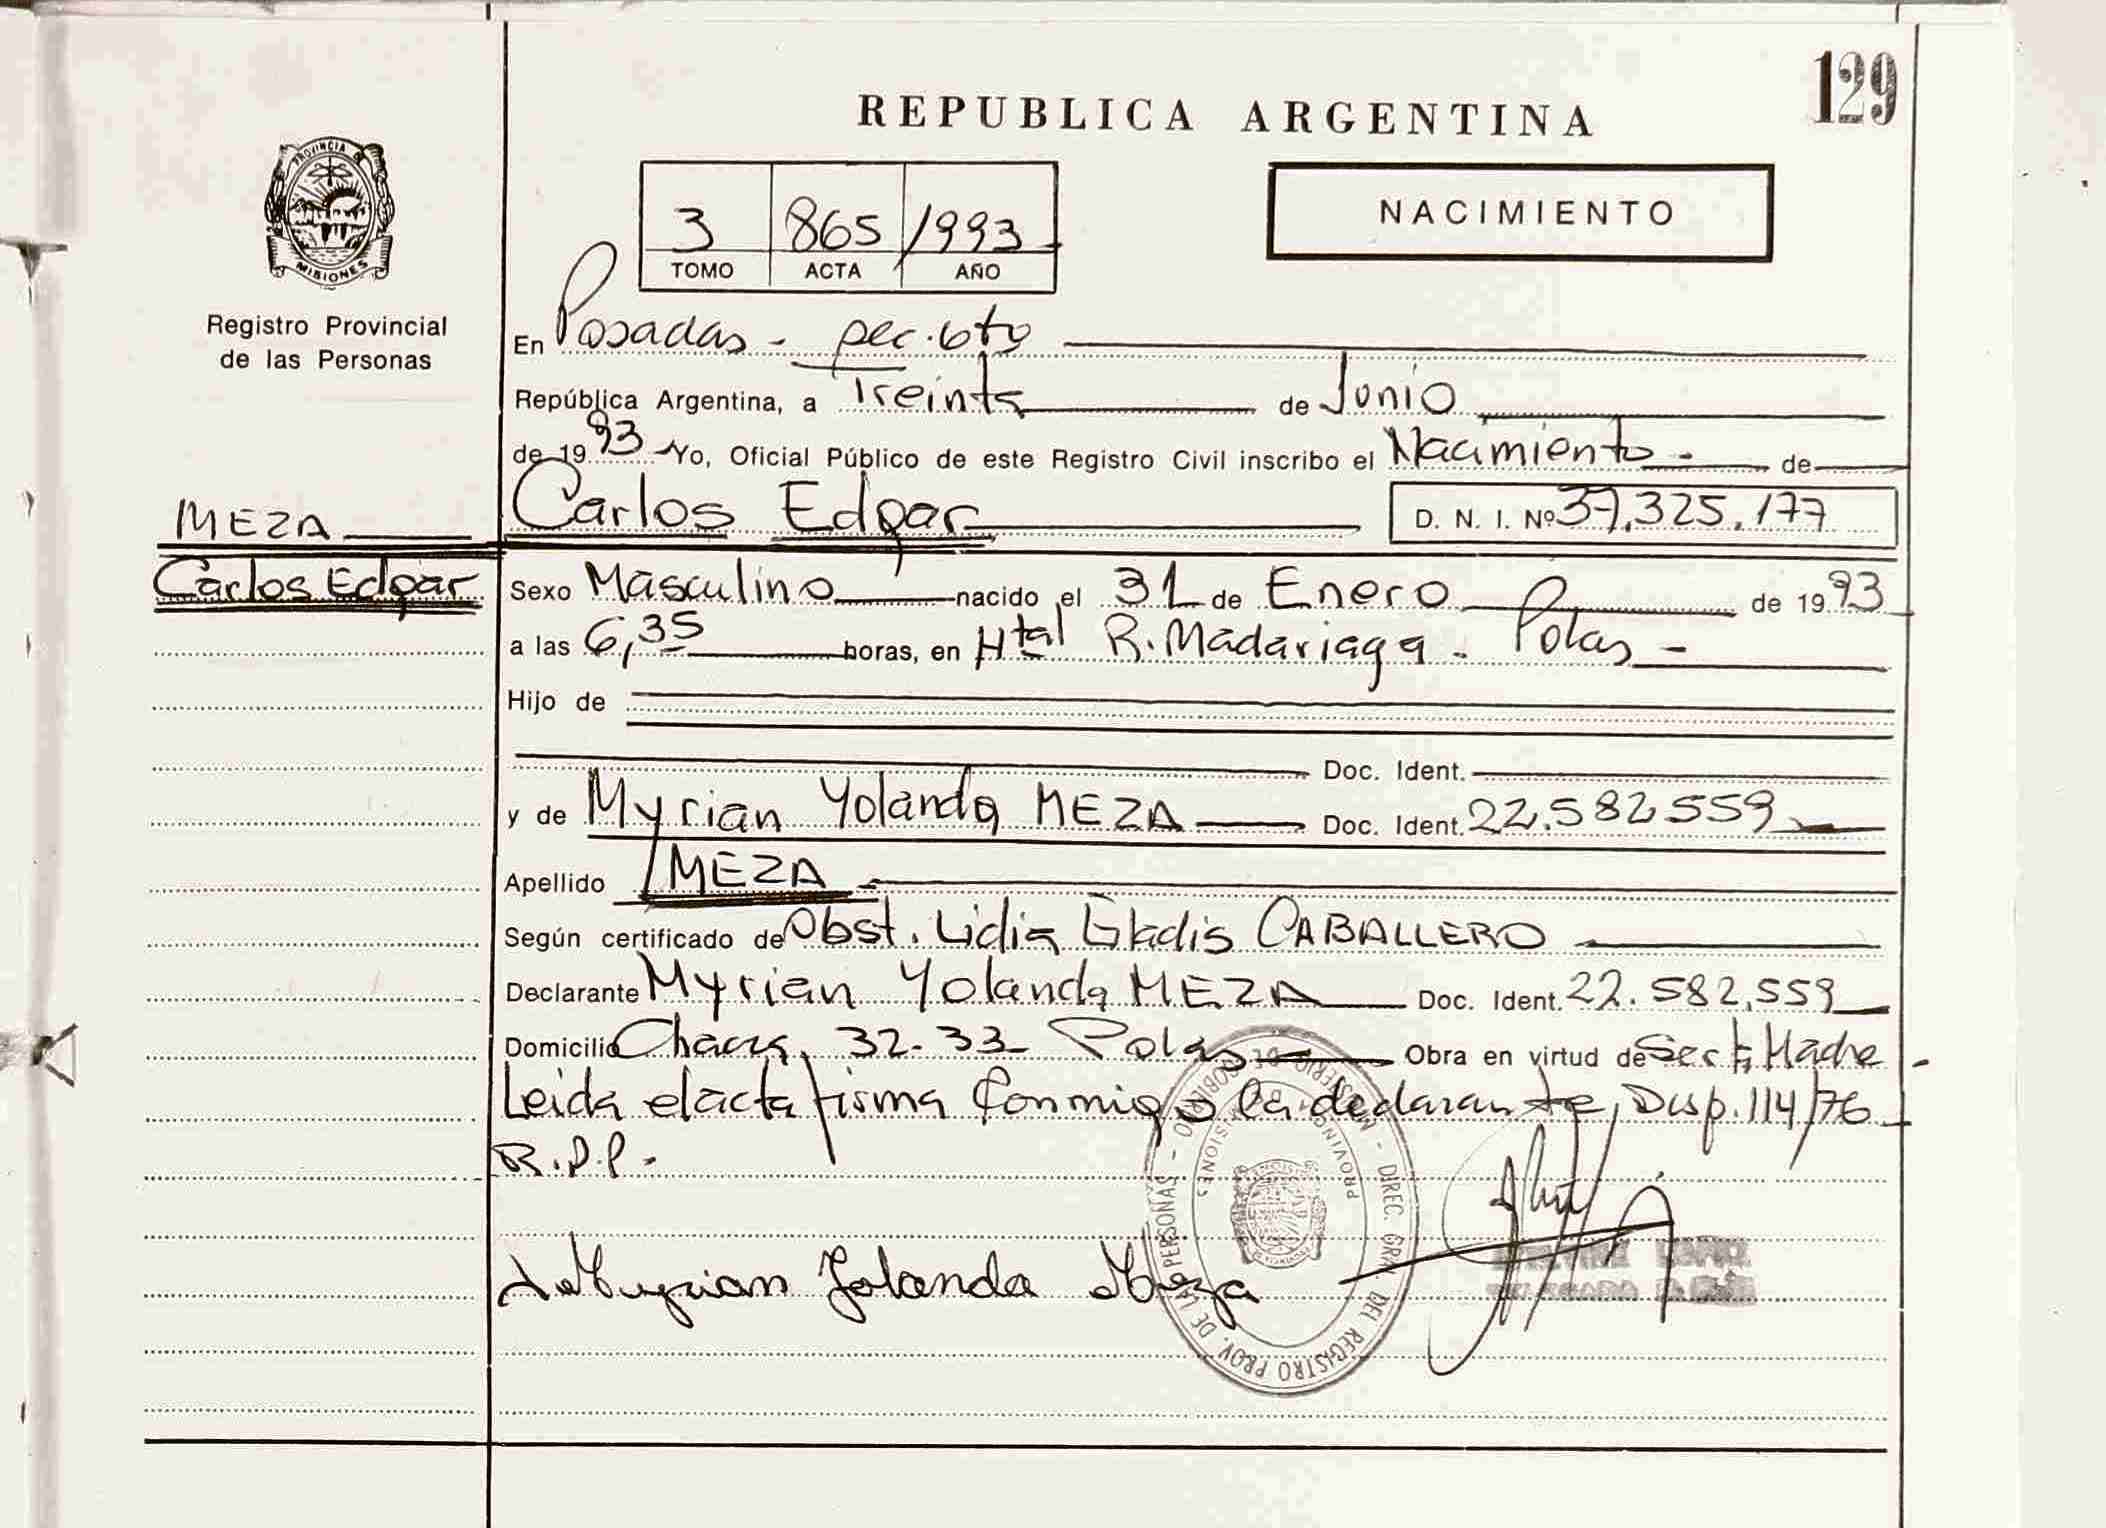 129
REPUBLICA ARGENTINA
PROVINCIA DE
MISIONES
Registro Provincial
de las Personas
3 865 1993
TOMO ACTA AÑO
NACIMIENTO
En Posadas - sec. 6ta
República Argentina, a Treinta de Junio
de 1993 Yo, Oficial Público de este Registro Civil inscribo el Nacimiento - de
Carlos Edgar D. N. I. Nº 37.325.177
MEZA
Carlos Edgar
Sexo Masculino nacido el 31 de Enero de 1993
a las 6,35 horas, en Htal R. Madariaga - Pdas -
Hijo de
Doc. Ident.
y de Myrian Yolanda MEZA Doc. Ident. 22.582.559
Apellido MEZA
Según certificado de Obst. Lidia Gladis CABALLERO
Declarante Myrian Yolanda MEZA Doc. Ident. 22.582.559
Domicilio Chacra 32-33 Pdas Obra en virtud de Ser la Madre -
Leida el acta firma conmigo la declarante, Disp. 114/76
R.P.P.
Myrian Yolanda Meza
MINISTERIO DE GOBIERNO - DIREC. GRAL. DEL REGISTRO PROV. DE LAS PERSONAS -
PROVINCIA MISIONES